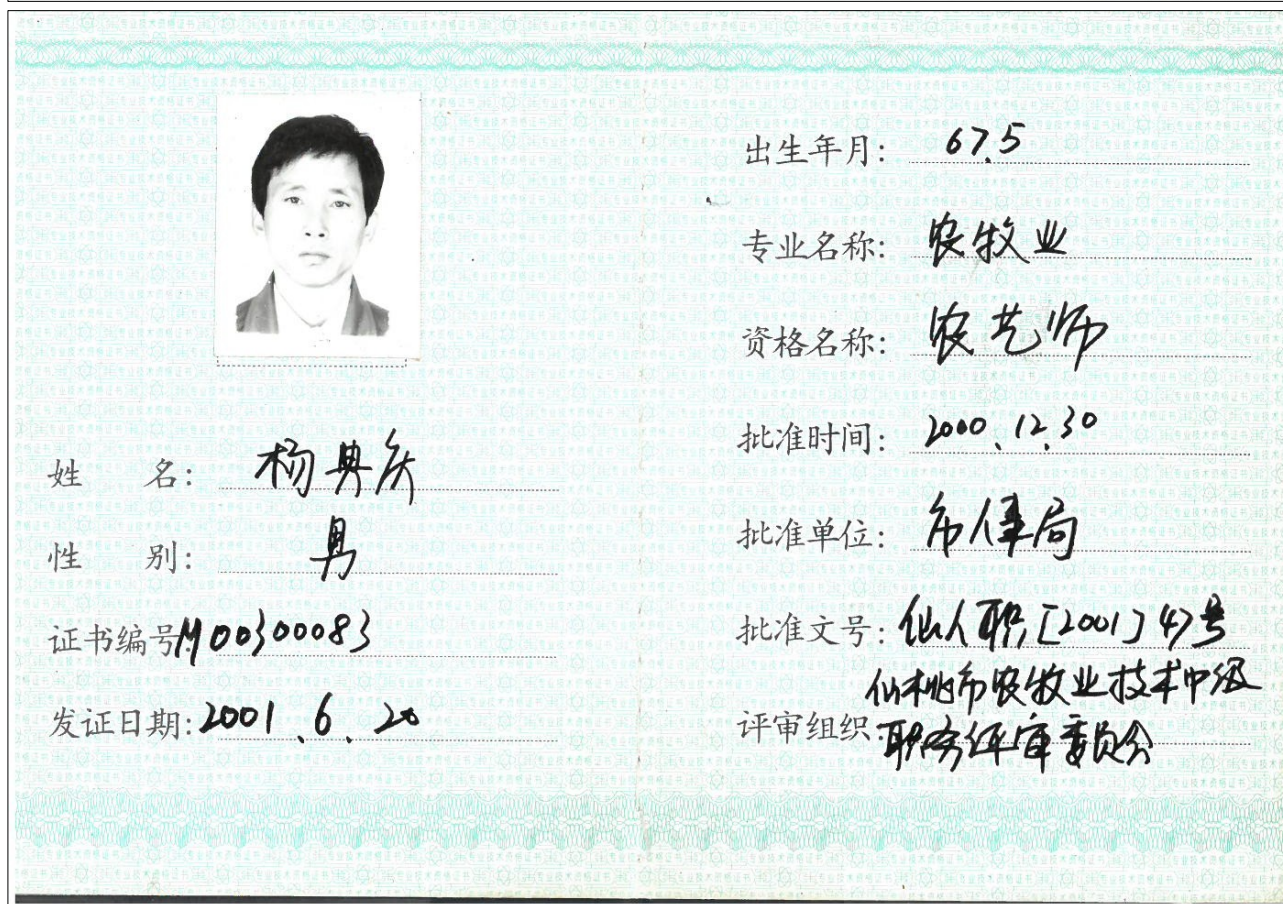 姓 名: 杨典庆
性 别: 男
证书编号 M00300083
发证日期: 2001.6.20
出生年月: 67.5
专业名称: 农牧业
资格名称: 农艺师
批准时间: 2000.12.30
批准单位: 市人事局
批准文号: 仙人职[2001]47号
仙桃市农牧业技术中级
评审组织: 职务评审委员会